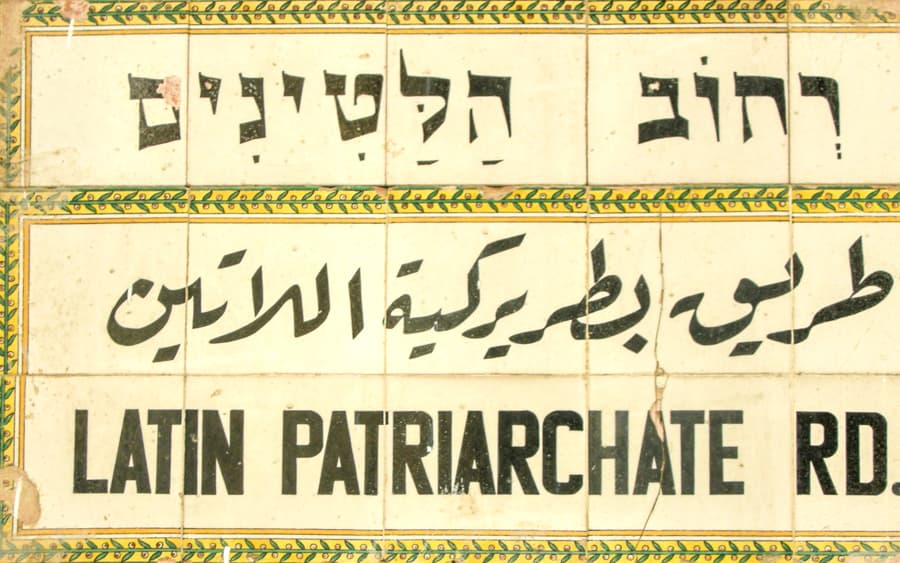 רְחוֹב הַלַּטִינִים
طريق بطريركية اللاتين
LATIN PATRIARCHATE RD.